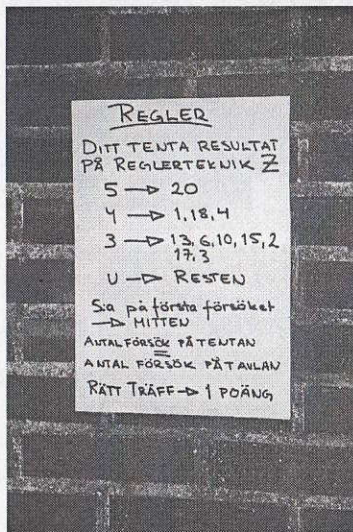 REGLER
DITT TENTA RESULTAT
PÅ REGLERTEKNIK Z
5 → 20
4 → 1, 18, 4
3 → 13, 6, 10, 15, 2
17, 3
U → RESTEN
5:a på första försöket
→ MITTEN
ANTAL FÖRSÖK PÅ TENTAN
=
ANTAL FÖRSÖK PÅ TAVLAN
RÄTT TRÄFF → 1 POÄNG